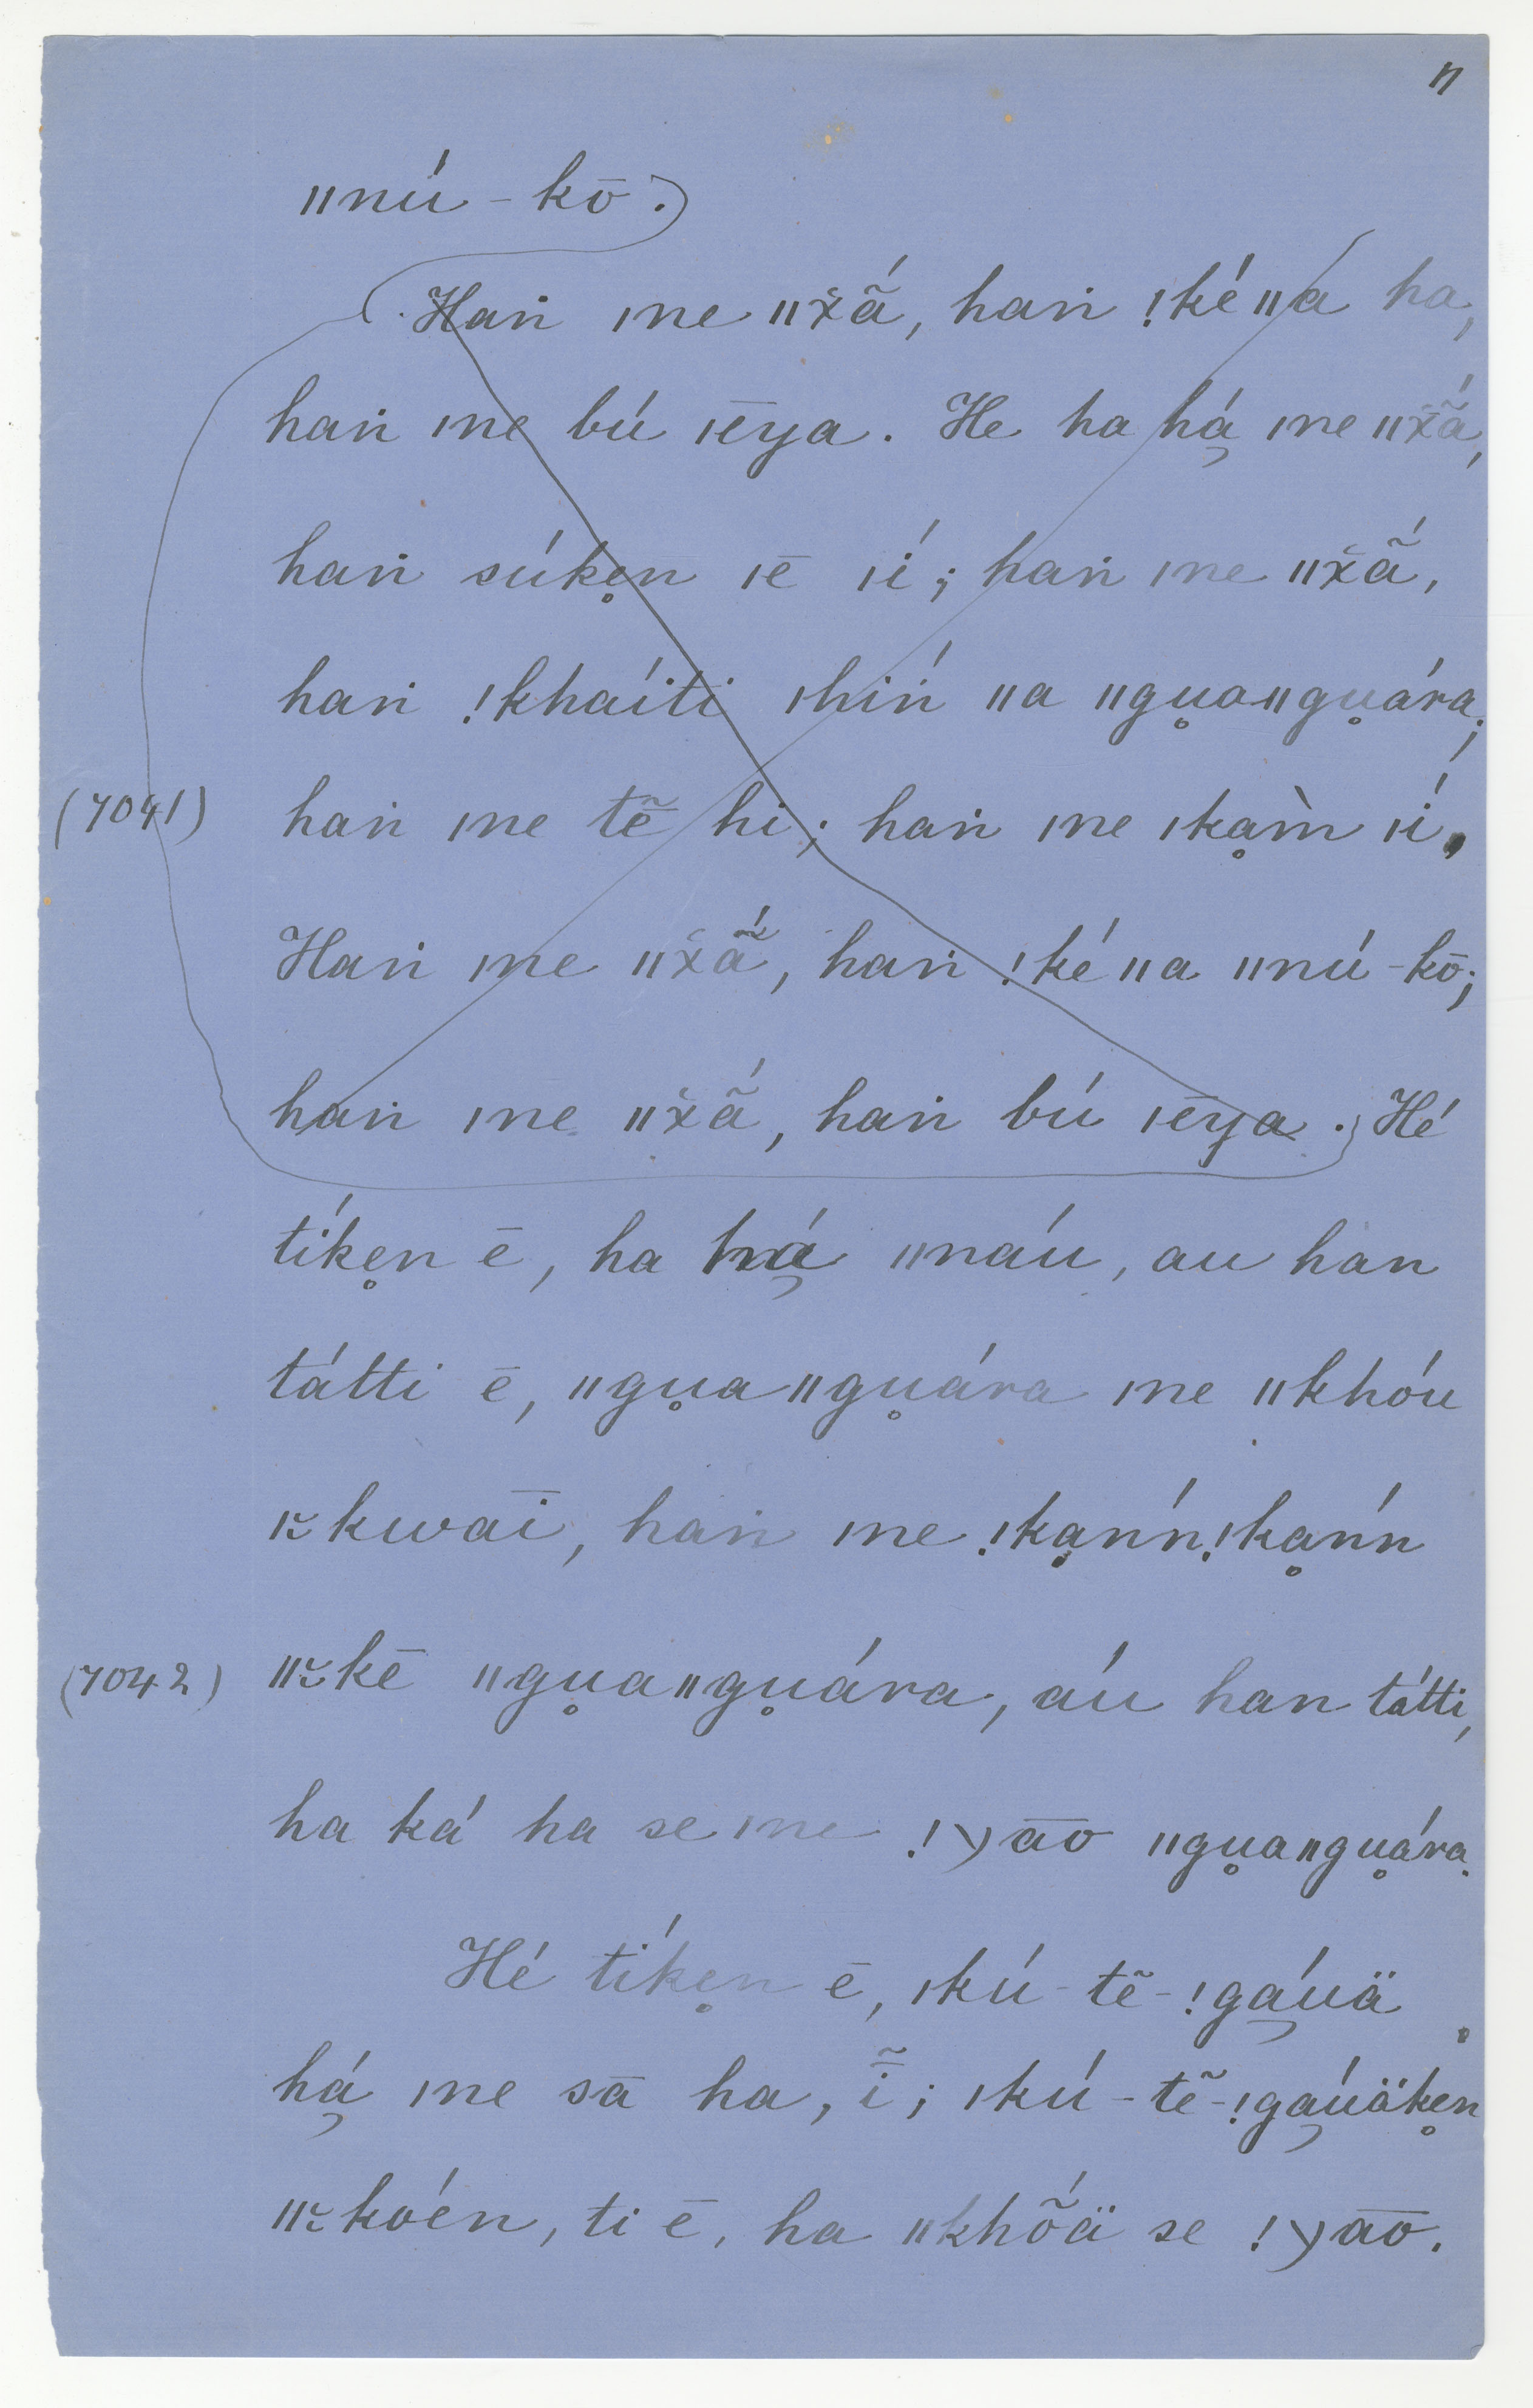 11
ǁnú-kō.
Haṅ ǀne ǁx̌ã́, haṅ ǃké ǁa ha,
haṅ ǀne bú ǀēya. He ha há̧ ǀne ǁx̌ã́,
haṅ súke̥n ǀē ǀí; haṅ ǀne ǁx̌ã́,
haṅ ǃkhaíti ǀhiṅ́ ǁa ǁgu̥aǁgu̥ára;
(7041) haṅ ǀne tẽ̄ hi; haṅ ǀne ǀkḁm̀ ǀí.
Haṅ ǀne ǁx̌ã́, haṅ ǃké ǁa ǁnú-kō;
haṅ ǀne ǁx̌ã́, haṅ bú ǀēya. Hé
tíke̥n ē, ha há̧ ǁnáu, au han
tátti ē, ǁgu̥aǁgu̥ára ǀne ǁkhóu
ǀ̆kwāī, haṅ ǀne ǃkḁńnǃkḁńn
(7042) ǁ̆kē ǁgu̥aǁgu̥ára, áu han tátti,
ha ká ha se ǀne ǃɣāō ǁgu̥aǁgu̥ára.
Hé tíke̥n ē, ǀkú-tẽ-ǃga̧úä
há̧ ǀne sā ha, ĩ̄; ǀkú-tẽ-ǃga̧úäke̥n
ǁ̆koén, ti ē, ha ǁkhṍä se ǃɣāō.